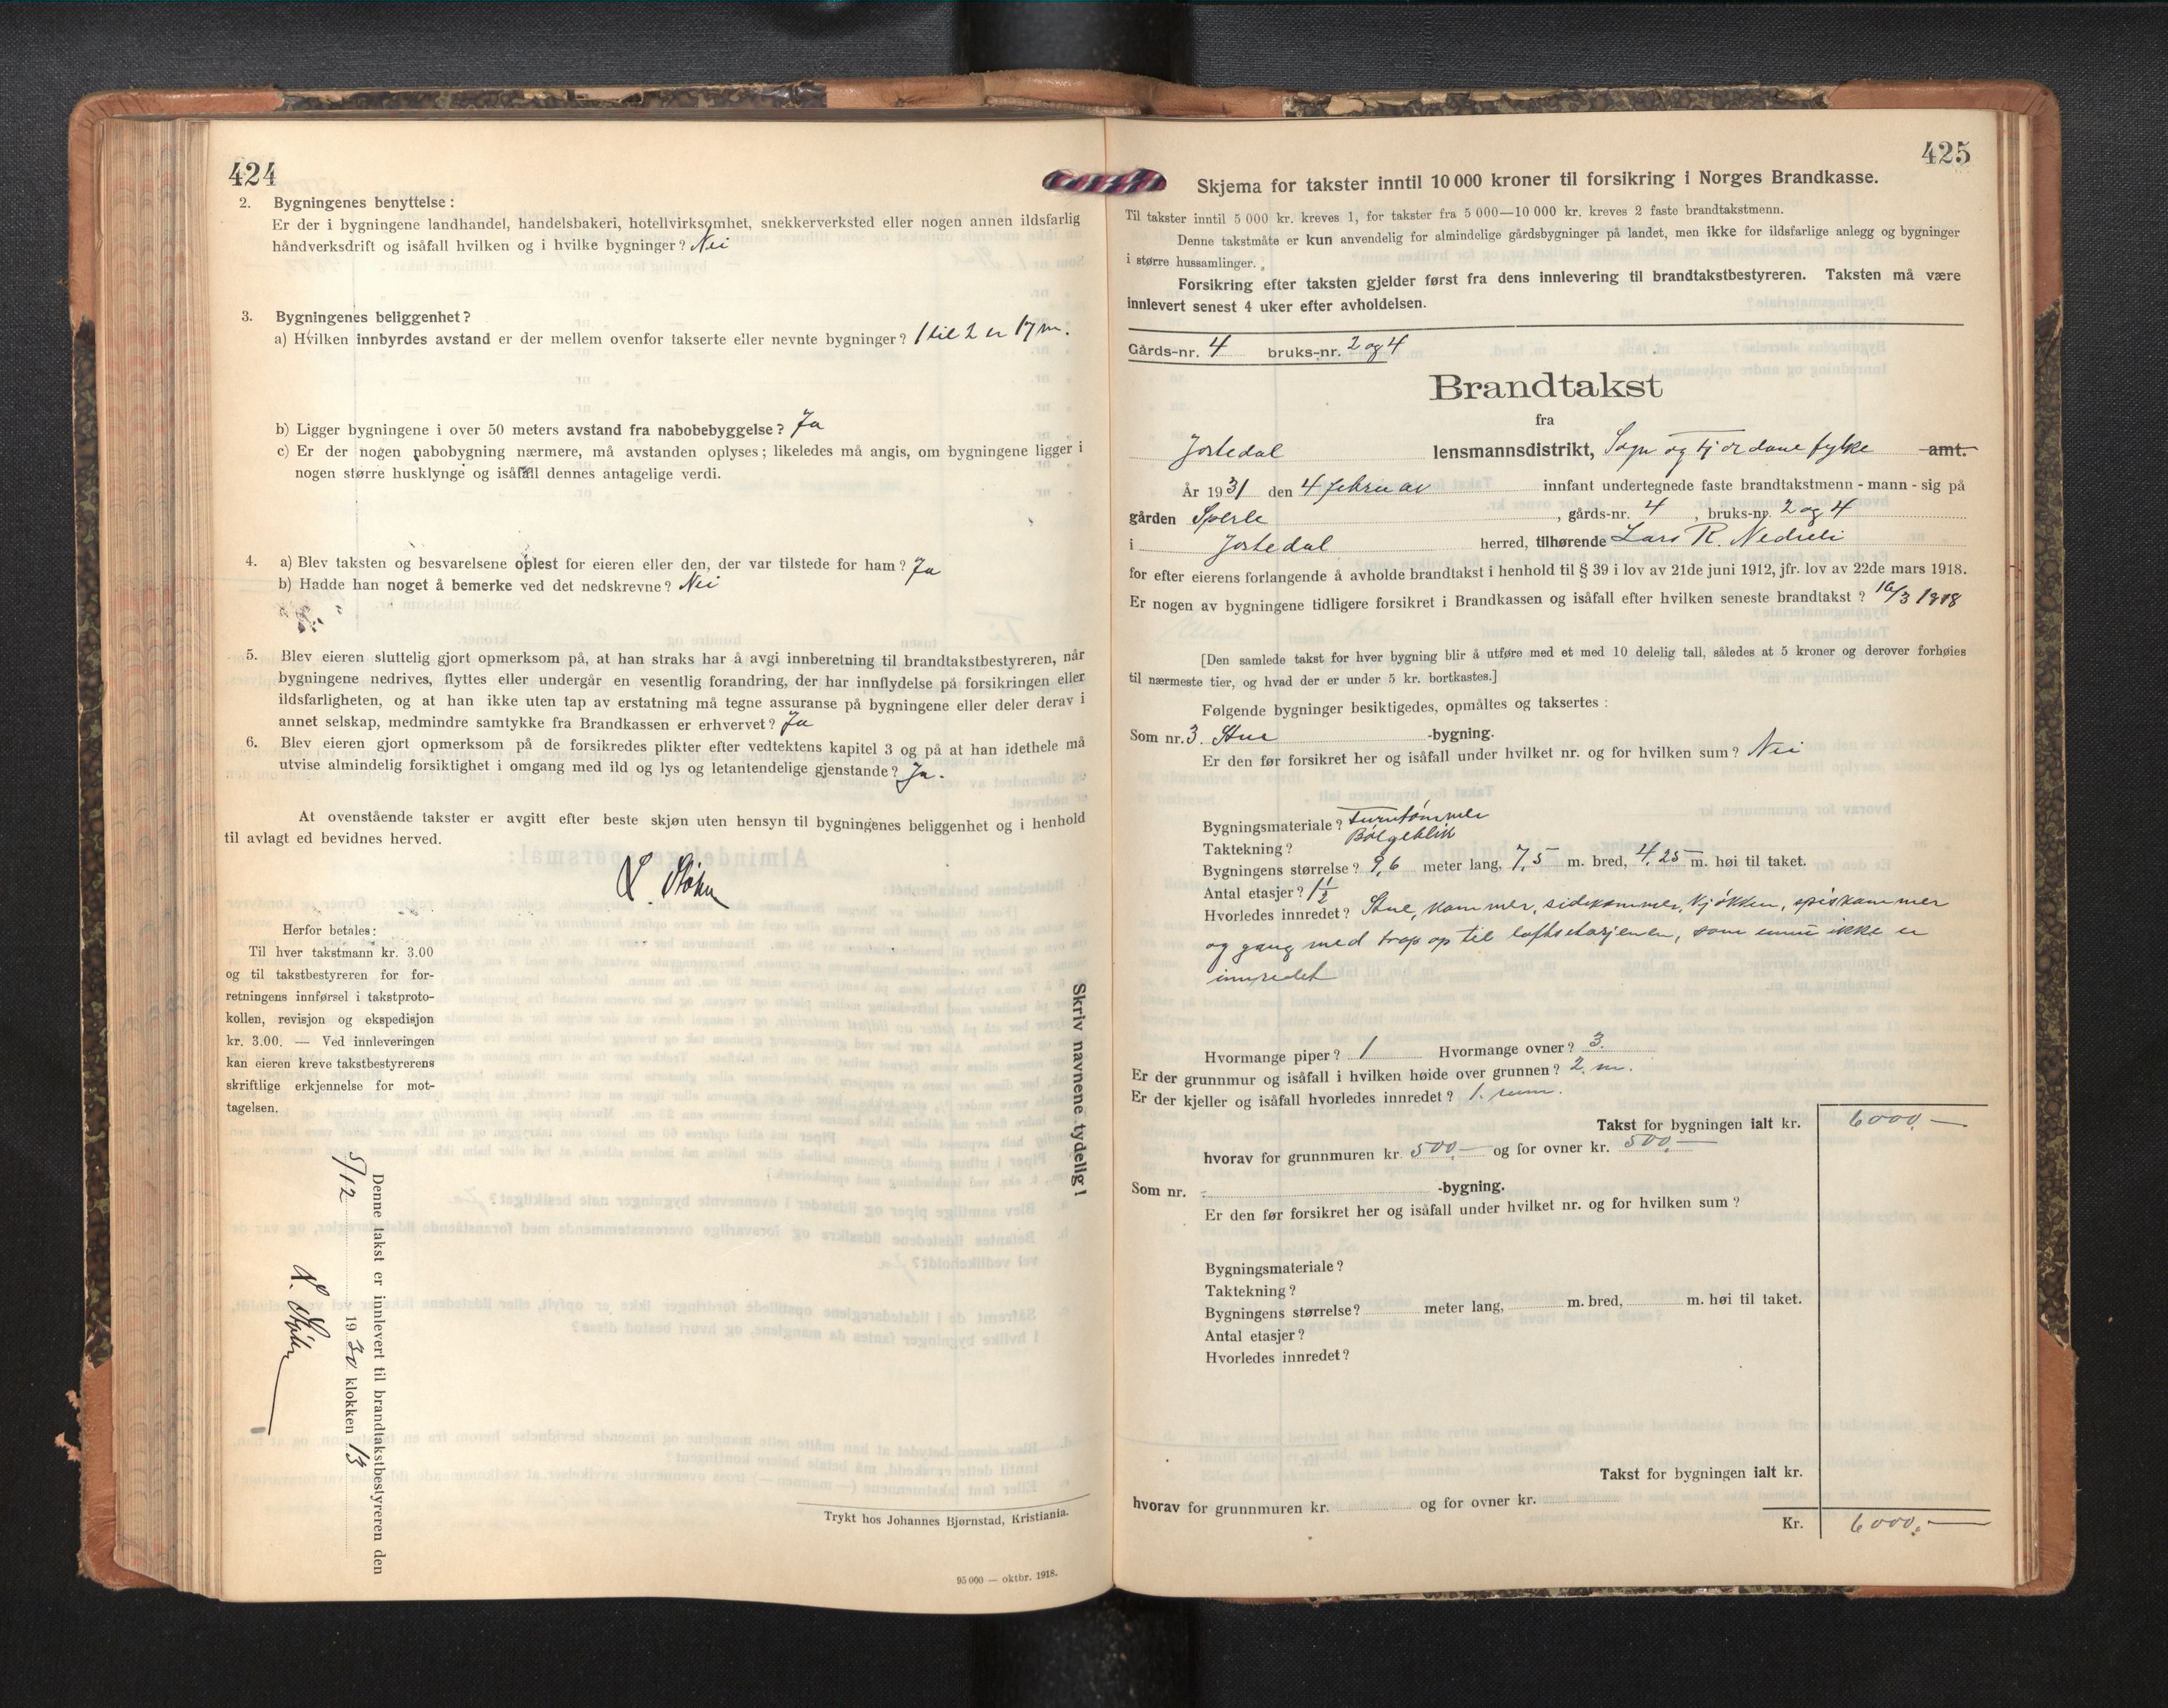 424
2. Bygningenes benyttelse :
Er der i bygningene landhandel, handelsbakeri, hotellvirksomhet, snekkerverksted eller nogen annen ildsfarlig
håndverksdrift og isåfall hvilken og i hvilke bygninger? Nei
3. Bygningenes beliggenhet?
a) Hvilken innbyrdes avstand er der mellem ovenfor takserte eller nevnte bygninger? 1 til 2 er 17 m.
b) Ligger bygningene i over 50 meters avstand fra nabobebyggelse? Ja
c) Er der nogen nabobygning nærmere, må avstanden oplyses; likeledes må angis, om bygningene ligger i
nogen større husklynge og isåfall dennes antagelige verdi.
4. a) Blev taksten og besvarelsene oplest for eieren eller den, der var tilstede for ham? Ja
b) Hadde han noget å bemerke ved det nedskrevne? Nei
5. Blev eieren sluttelig gjort opmerksom på, at han straks har å avgi innberetning til brandtakstbestyreren, når
bygningene nedrives, flyttes eller undergår en vesentlig forandring, der har innflydelse på forsikringen eller
ildsfarligheten, og at han ikke uten tap av erstatning må tegne assuranse på bygningene eller deler derav i
annet selskap, medmindre samtykke fra Brandkassen er erhvervet? Ja
6. Blev eieren gjort opmerksom på de forsikredes plikter efter vedtektens kapitel 3 og på at han idethele må
utvise almindelig forsiktighet i omgang med ild og lys og letantendelige gjenstande? Ja.
At ovenstående takster er avgitt efter beste skjøn uten hensyn til bygningenes beliggenhet og i henhold
til avlagt ed bevidnes herved.
Herfor betales:
Til hver takstmann kr. 3.00
og til takstbestyreren for for-
retningens innførsel i takstproto-
kollen, revisjon og ekspedisjon
kr. 3.00. — Ved innleveringen
kan eieren kreve takstbestyrerens
skriftlige erkjennelse for mot-
tagelsen.
Skriv navnene tydelig!
Denne takst er innlevert til brandtakstbestyreren den
5/12 1930 klokken 13
Trykt hos Johannes Bjørnstad, Kristiania.
95 000 — oktbr. 1918.
425
Skjema for takster inntil 10 000 kroner til forsikring i Norges Brandkasse.
Til takster inntil 5 000 kr. kreves 1, for takster fra 5 000—10 000 kr. kreves 2 faste brandtakstmenn.
Denne takstmåte er kun anvendelig for almindelige gårdsbygninger på landet, men ikke for ildsfarlige anlegg og bygninger
i større hussamlinger.
Forsikring efter taksten gjelder først fra dens innlevering til brandtakstbestyreren. Taksten må være
innlevert senest 4 uker efter avholdelsen.
Gårds-nr. 4 bruks-nr. 2 og 4
Brandtakst
fra
Jostedal lensmannsdistrikt, Sogn og Fjordane fylke amt.
År 1931 den 4 februar innfant undertegnede faste brandtakstmenn - mann - sig på
gården Sperle, gårds-nr. 4, bruks-nr. 2 og 4
i Jostedal herred, tilhørende Lars R. Nedreli
for efter eierens forlangende å avholde brandtakst i henhold til § 39 i lov av 21de juni 1912, jfr. lov av 22de mars 1918.
Er nogen av bygningene tidligere forsikret i Brandkassen og isåfall efter hvilken seneste brandtakst?
[Den samlede takst for hver bygning blir å utføre med et med 10 delelig tall, således at 5 kroner og derover forhøies
til nærmeste tier, og hvad der er under 5 kr. bortkastes.]
Følgende bygninger besiktigedes, opmåltes og taksertes :
Som nr. 3. Stue -bygning.
Er den før forsikret her og isåfall under hvilket nr. og for hvilken sum? Nei
Bygningsmateriale? Furutømmer
Taktekning? Bølgeblik
Bygningens størrelse? 9,6 meter lang, 7,5 m. bred, 4,25 m. høi til taket.
Antal etasjer? 1½
Hvorledes innredet? Stue, kammer, sidekammer, kjøkken, spiskammer
og gang med trap op til loftsetasjenen, som ennu ikke er
innredet
Hvormange piper? 1 Hvormange ovner? 3.
Er der grunnmur og isåfall i hvilken høide over grunnen? 2. m.
Er der kjeller og isåfall hvorledes innredet? 1. rum.
Takst for bygningen ialt kr. 6000,—
hvorav for grunnmuren kr. 500,— og for ovner kr. 500,—
Som nr. -bygning.
Er den før forsikret her og isåfall under hvilket nr. og for hvilken sum?
Bygningsmateriale?
Taktekning?
Bygningens størrelse? meter lang, m. bred, m. høi til taket.
Antal etasjer?
Hvorledes innredet?
Takst for bygningen ialt kr.
hvorav for grunnmuren kr. og for ovner kr.
Kr. 6000,—